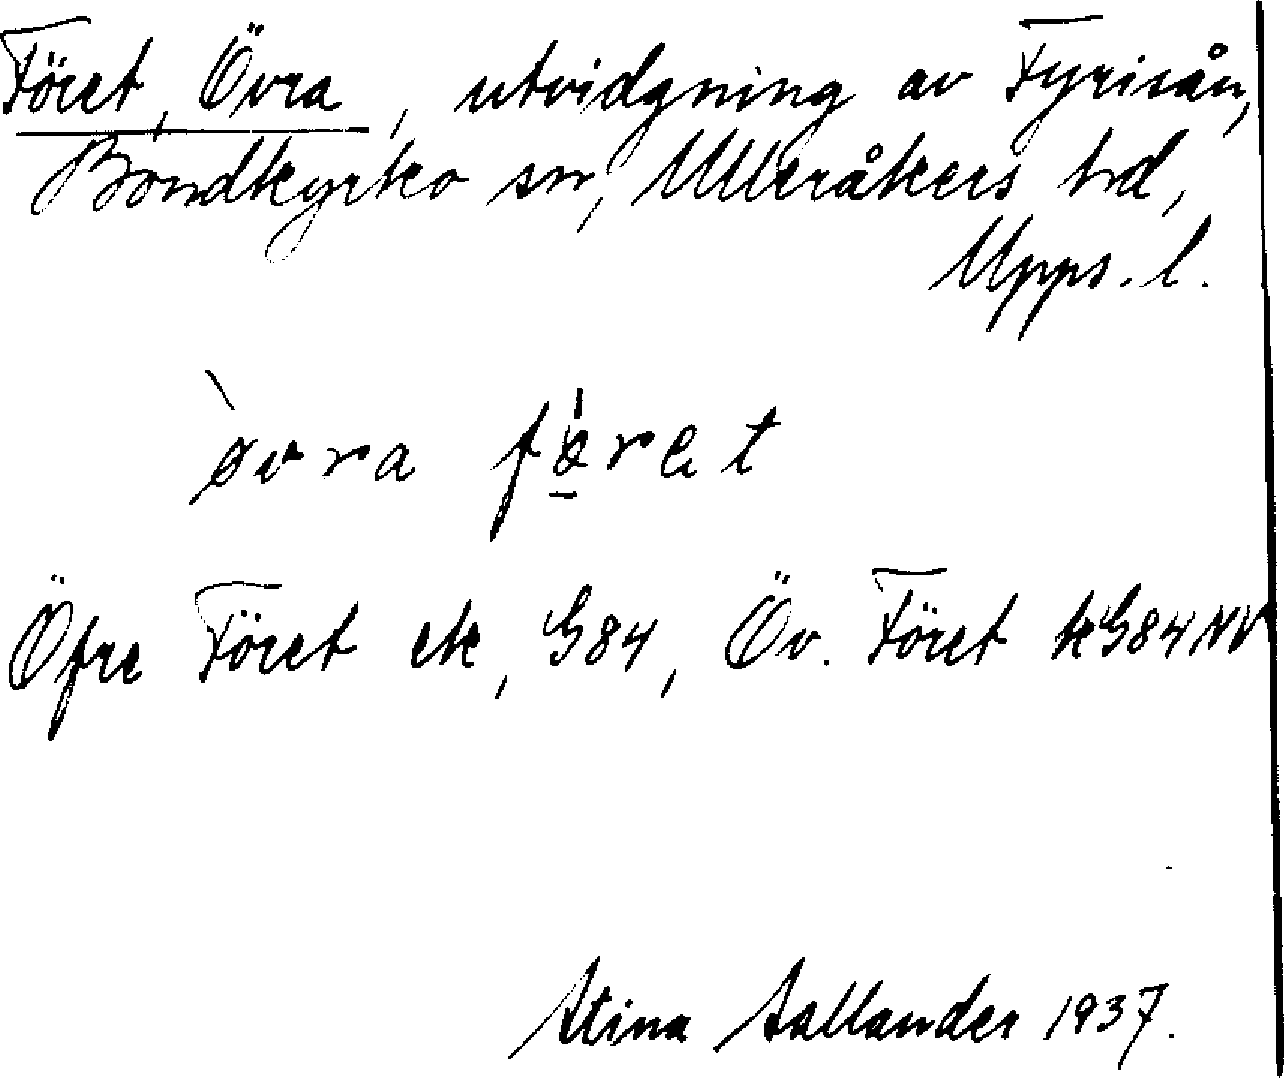 Föret, Övra, utvidgning av Fyrisån,
Bondkyrko sn, Ulleråkers hd,
Upps. l.
̀øvra fø̱ret
Öfre Föret ek, G84, Öv. Föret kG84NV
Stina Sallander 1937.